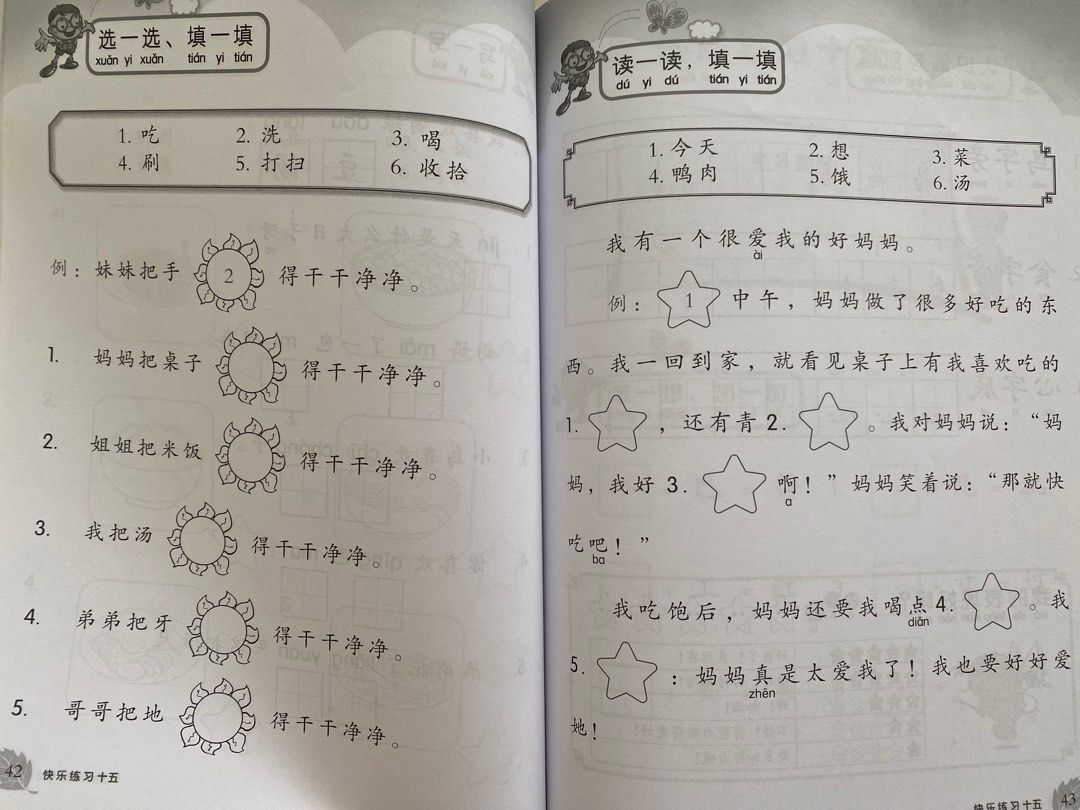 选一选、填一填
xuǎn yi xuǎn tián yi tián
1. 吃 2. 洗 3. 喝
4. 刷 5. 打扫 6. 收拾
例：妹妹把手 2 得干干净净。
1. 妈妈把桌子 得干干净净。
2. 姐姐把米饭 得干干净净。
3. 我把汤 得干干净净。
4. 弟弟把牙 得干干净净。
5. 哥哥把地 得干干净净。
42 快乐练习十五
读一读，填一填
dú yi dú tián yi tián
1. 今天 2. 想 3. 菜
4. 鸭肉 5. 饿 6. 汤
我有一个很爱我的好妈妈。
ài
例： 1 中午，妈妈做了很多好吃的东
西。我一回到家，就看见桌子上有我喜欢吃的
1. ，还有青 2. 。我对妈妈说：“妈
妈，我好 3. 啊！”妈妈笑着说：“那就快
a
吃吧！”
ba
我吃饱后，妈妈还要我喝点 4. 。我
diǎn
5. ：妈妈真是太爱我了！我也要好好爱
zhēn
她！
快乐练习十五 43